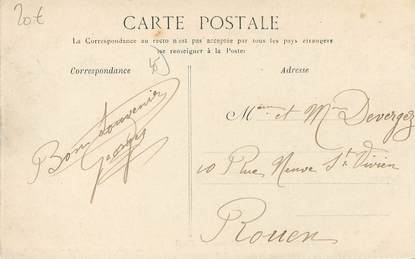 20€
CARTE POSTALE
La Correspondance au recto n'est pas acceptée par tous les pays étrangers
se renseigner à la Poste)
Correspondance
Adresse
Bon Souvenir
Georges
M et Mme Devergez
10 Rue Neuve St Vivien
Rouen